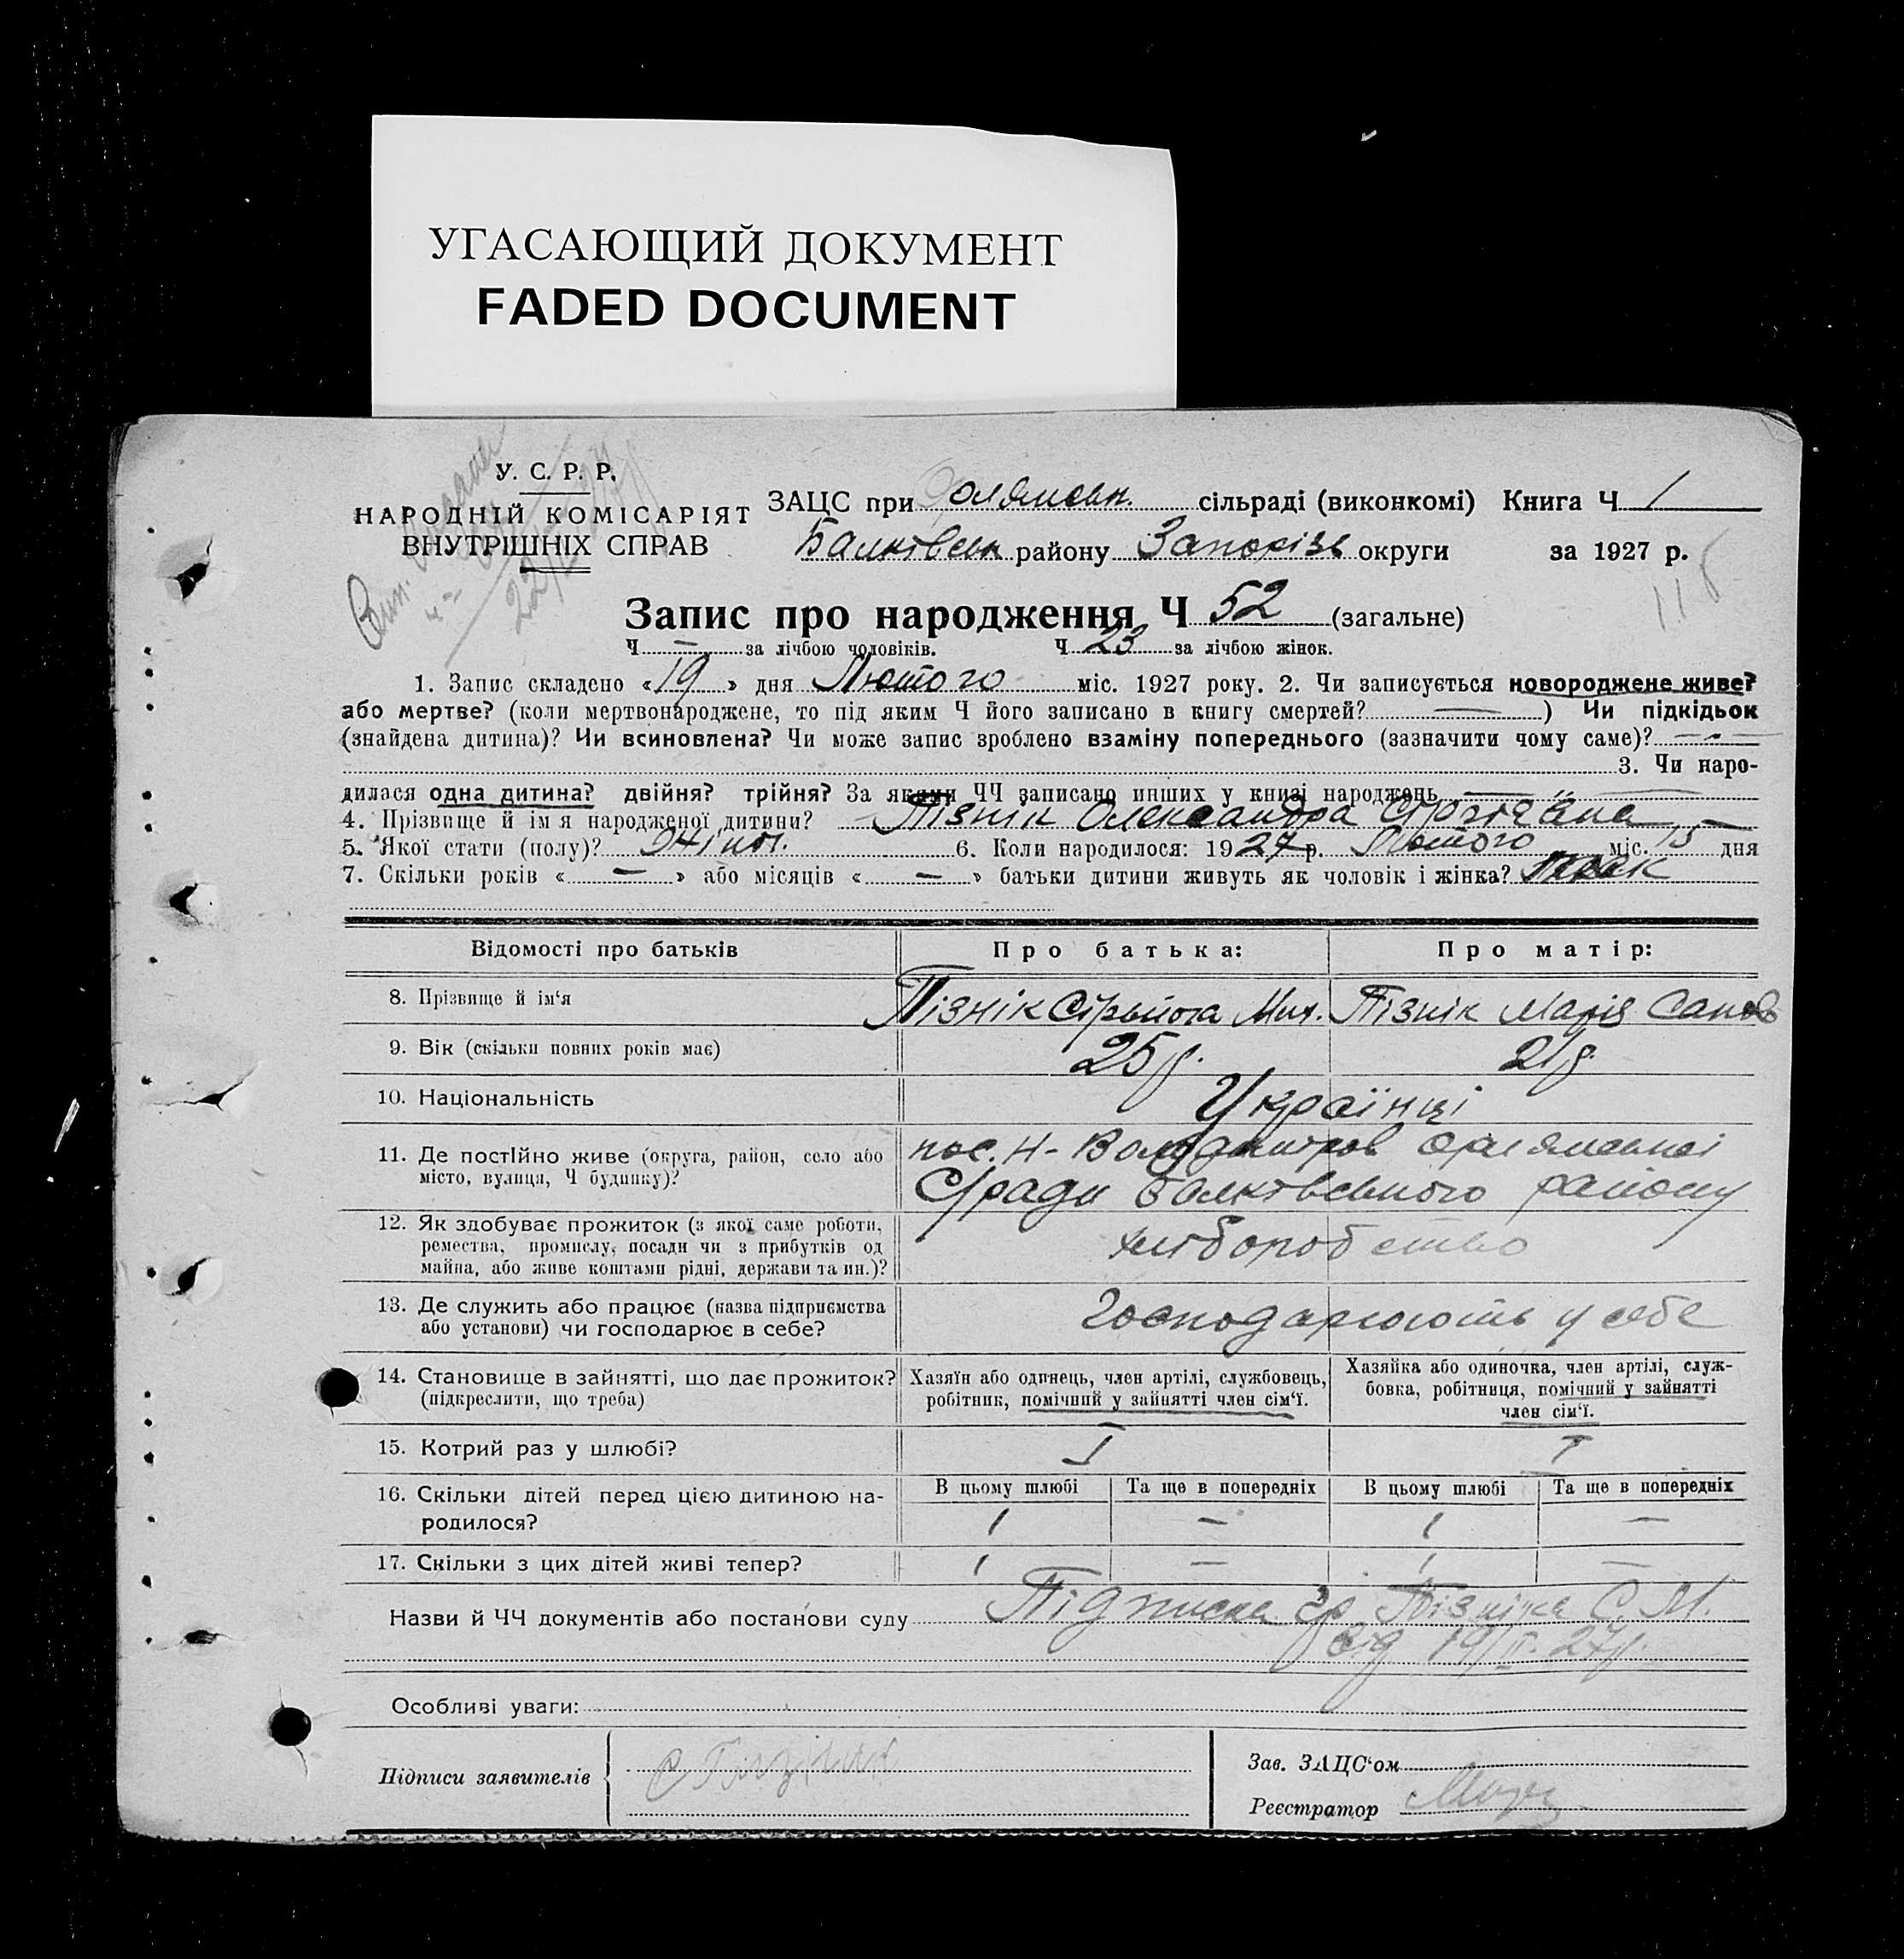 УГАСАЮЩИЙ ДОКУМЕНТ
FADED DOCUMENT
У. С. Р. Р.
НАРОДНІЙ КОМІСАРІЯТ
ВНУТРІШНІХ СПРАВ
22/
ЗАЦС при сільраді (виконкомі) Книга Ч 1
Балківськ району Запоріз округи за 1927 р.
118
Запис про народження Ч 52 (загальне)
Ч — за лічбою чоловіків. Ч 23 за лічбою жінок.
1. Запис складено «19» дня Лютого міс. 1927 року. 2. Чи записується новороджене живе?
або мертве? (коли мертвонароджене, то під яким Ч його записано в книгу смертей? —) Чи підкідьок
(знайдена дитина)? Чи всиновлена? Чи може запис зроблено взаміну попереднього (зазначити чому саме)? —
3. Чи наро-
дилася одна дитина? двійня? трійня? За якими ЧЧ записано инших у книзі народжень — „ —
4. Прізвище й імя народженої дитини? Пізнік Олександра
5. Якої стати (полу)? Жіноч. 6. Коли народилося: 1927 р. Лютого міс. 15 дня
7. Скільки років «—» або місяців «—» батьки дитини живуть як чоловік і жінка? Так
Відомості про батьків Про батька: Про матір:
8. Прізвище й ім‘я Пізнік Сірьйога Мих. Пізнік Марія
9. Вік (скільки повних років має) 25 р. 21 р.
10. Національність Українці
11. Де постІйно живе (округа, район, село або пос. Н-
місто, вулиця, Ч будинку)? С/ради Балківського району
12. Як здобуває прожиток (з якої саме роботи,
ремества, промислу, посади чи з прибутків од хліборобство
майна, або живе коштами рідні, держави та ин.)?
13. Де служить або працює (назва підприємства Господарюють у себе
або установи) чи господарює в себе?
14. Становище в зайнятті, що дає прожиток? Хазяїн або одинець, член артілі, службовець, Хазяйка або одиночка, член артілі, служ-
(підкреслити, що треба) робітник, помічний у зайнятті член сім‘ї. бовка, робітниця, помічний у зайнятті
член сім‘ї.
15. Котрий раз у шлюбі? I I
16. Скільки дітей перед цією дитиною на- В цьому шлюбі Та ще в попередніх В цьому шлюбі Та ще в попередніх
родилося? 1 — 1 —
17. Скільки з цих дітей живі тепер? 1 — 1 —
Назви й ЧЧ документів або постанови суду Підписка гр. Пізніка С. М.
від 19/II-27 р.
Особливі уваги:
Підписи заявителів
Зав. ЗАЦС‘ом
Реєстратор